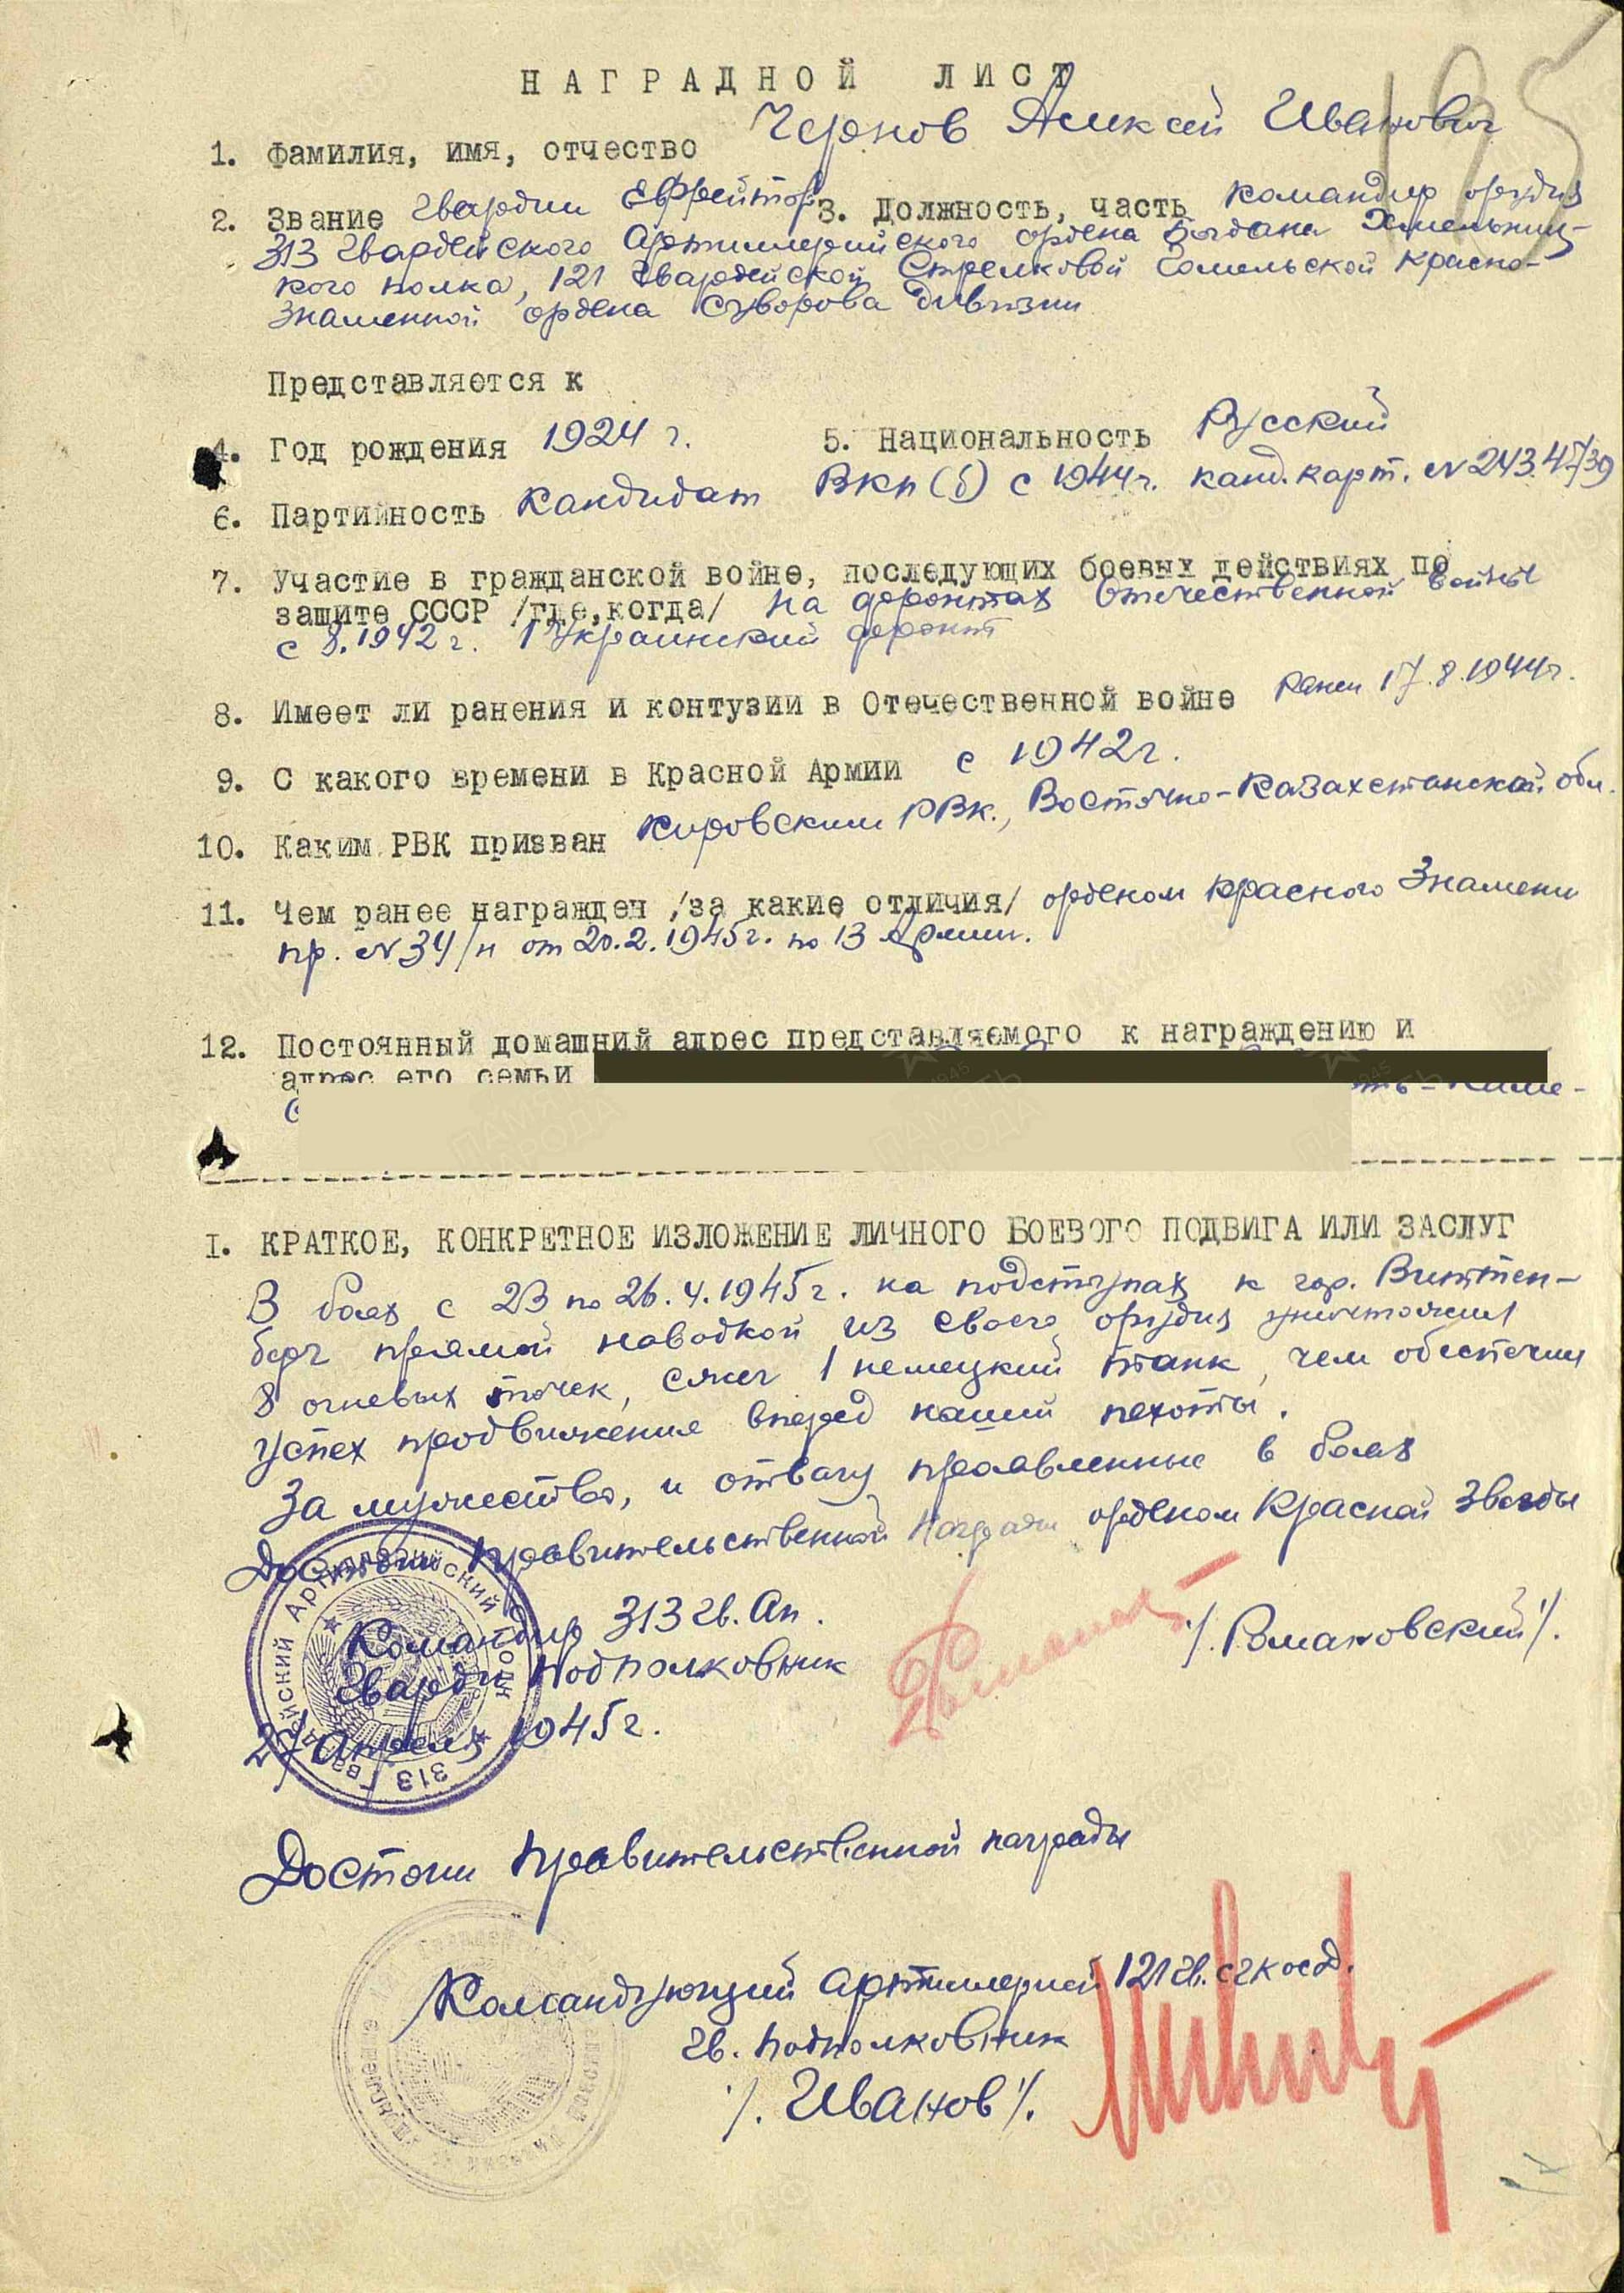 НАГРАДНОЙ ЛИСТ
195
1. Фамилия, имя, отчество Чернов Алексей Иванович
2. Звание Гвардии Ефрейтор 3. Должность, часть командир орудия
313 Гвардейского Артиллерийского ордена Богдана Хмельниц-
кого полка, 121 Гвардейской Стрелковой Гомельской Красно-
знаменной ордена Суворова дивизии
Представляется к
4. Год рождения 1924 г. 5. Национальность Русский
6. Партийность кандидат ВКП(б) с 1944г. канд. карт. №
7. Участие в гражданской войне, последующих боевых действиях по
защите СССР /где, когда/ На фронтах Отечественной войны
с 8.1942 г. 1 Украинский фронт
8. Имеет ли ранения и контузии в Отечественной войне ранен 17.8.1944г.
9. С какого времени в Красной Армии с 1942г.
10. Каким РВК призван Кировским РВК., Восточно-Казахстанской обл.
11. Чем ранее награжден /за какие отличия/ орденом Красного Знамени
пр. №34/н от 20.2.1945г. по 13 Армии.
12. Постоянный домашний адрес представляемого к награждению и
адрес его семьи
I. КРАТКОЕ, КОНКРЕТНОЕ ИЗЛОЖЕНИЕ ЛИЧНОГО БОЕВОГО ПОДВИГА ИЛИ ЗАСЛУГ
В боях с 23 по 26.4.1945г. на подступах к гор. Виттен-
берг прямой наводкой из своего орудия уничтожил
8 огневых точек, сжег 1 немецкий танк, чем обеспечил
успех продвижения вперед нашей пехоты.
За мужество, и отвагу проявленные в боях
Достоин Правительственной Награды орденом Красной Звезды
Командир 313 Гв. Ап.
Гвардии Подполковник /. Романовский /.
27 Апреля 1945г.
313 Гвардейский Артиллерийский
Достоин Правительственной награды
Командующий Артиллерией 121 Гв. с
Гв. Подполковник
/. Иванов /.